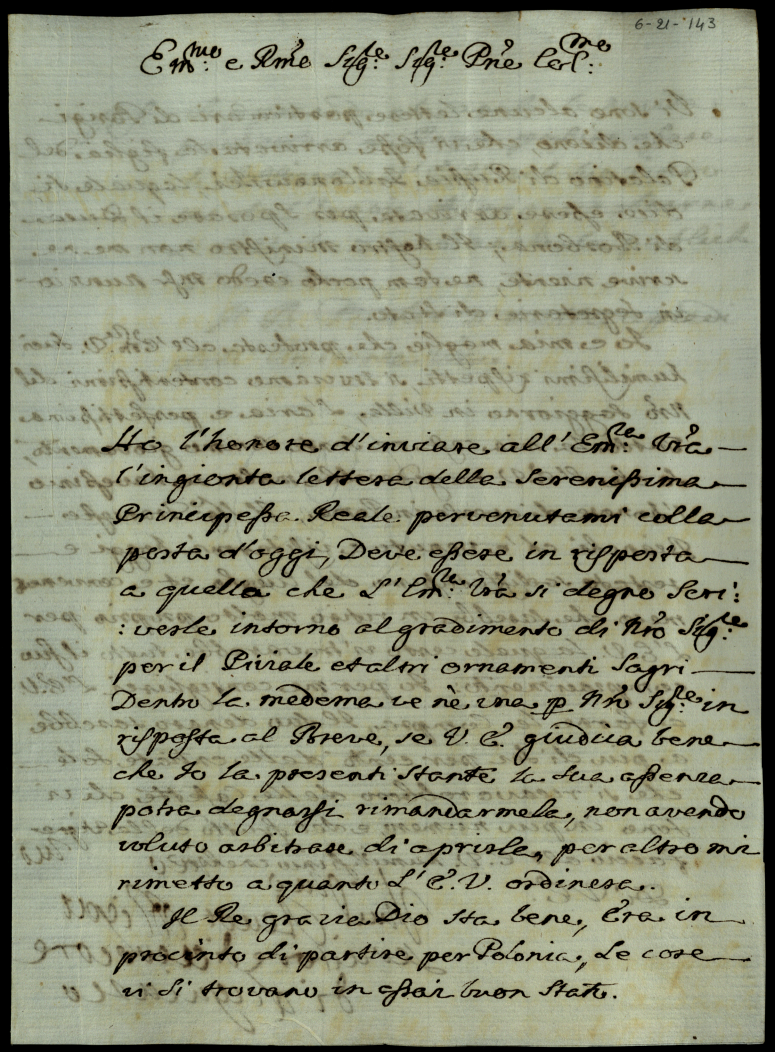 6-21-143
Em:mo e Rmo Sig:re Sig:re Pne Col:mo
Ho l'honore d'inviare all' Em:za Vra
l'ingionta lettera della Serenissima
Principessa Reale pervenutami colla
posta d'oggi, Deve essere in risposta
a quella che L'Em:za Vra si degno Scri:
:verle intorno al gradimento di Nro Sig:re
per il Piviale et altri ornamenti Sagri
Dentro la medema ve nè una p Nro Sig:re in
risposta al Breve, se V. E. giudica bene
che Io la presenti stante la Sua assenza
potra degnarsi rimandarmela, non avendo
voluto arbitrare di aprirla, per altro mi
rimetto a quanto L'E. V. ordinera.
Il Re grazie Dio sta bene, Era in
procinto di partire per Polonia, Le cose
vi Si trovano in assai buon Stato.